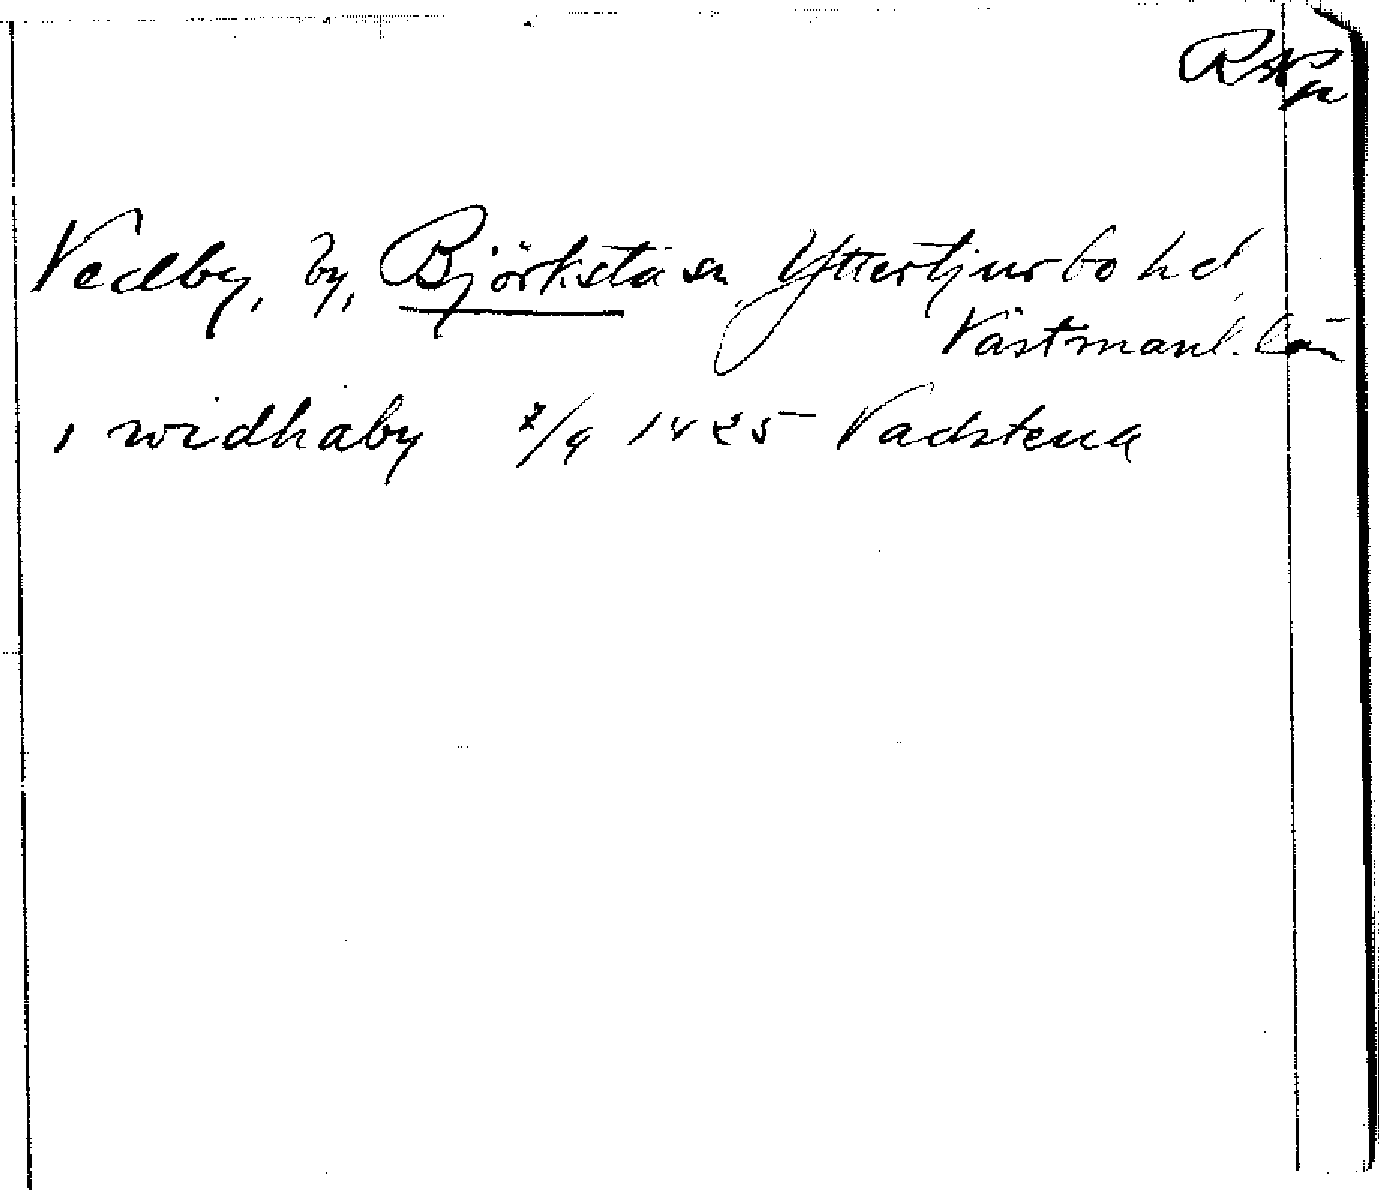 Vedby, by, Björksta sn Yttertjurbo hd,
Västmanl. län
i widhaby 8/9 1425 Vadstena